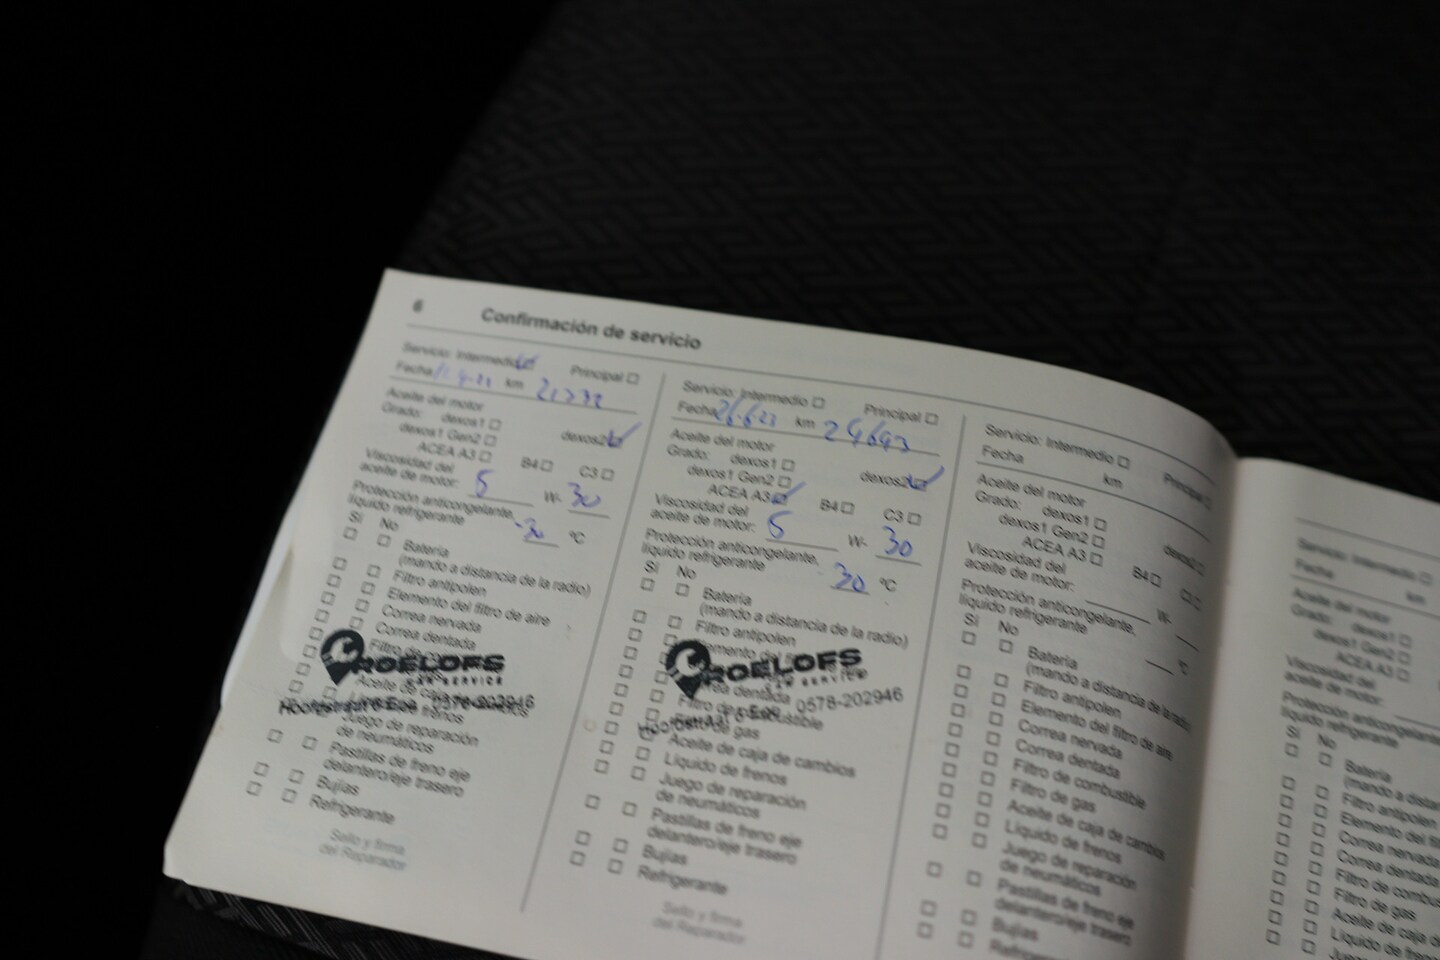 6 Confirmación de servicio
Servicio: Intermedio Principal
Fecha km
Aceite del motor
Grado: dexos1
dexos1 Gen2 dexos2
ACEA A3 B4 C3
Viscosidad del
aceite de motor: 5 W- 30
Protección anticongelante,
líquido refrigerante -30 ºC
Sí No
Batería
(mando a distancia de la radio)
Filtro antipolen
Elemento del filtro de aire
Correa nervada
Correa dentada
ROELOFS
CAR SERVICE
0578-202946
Juego de reparación
de neumáticos
Pastillas de freno eje
delantero/eje trasero
Bujías
Refrigerante
Sello y firma
del Reparador
Servicio: Intermedio Principal
Fecha 26-6-23 km 29693
Aceite del motor
Grado: dexos1
dexos1 Gen2 dexos2
ACEA A3 B4 C3
Viscosidad del
aceite de motor: 5 W- 30
Protección anticongelante,
líquido refrigerante 30 ºC
Sí No
Batería
(mando a distancia de la radio)
Filtro antipolen
ROELOFS
CAR SERVICE
0578-202946
Aceite de caja de cambios
Líquido de frenos
Juego de reparación
de neumáticos
Pastillas de freno eje
delantero/eje trasero
Bujías
Refrigerante
Sello y firma
del Reparador
Servicio: Intermedio Principal
Fecha km
Aceite del motor
Grado: dexos1
dexos1 Gen2 dexos2
ACEA A3 B4 C3
Viscosidad del
aceite de motor: W-
Protección anticongelante,
líquido refrigerante ºC
Sí No
Batería
(mando a distancia de la radio)
Filtro antipolen
Elemento del filtro de aire
Correa nervada
Correa dentada
Filtro de combustible
Filtro de gas
Aceite de caja de cambios
Líquido de frenos
Juego de reparación
de neumáticos
Pastillas de freno eje
delantero/eje trasero
Bujías
Servicio: Intermedio
Fecha km
Aceite del motor
Grado: dexos1
dexos1 Gen2
ACEA A3
Viscosidad del
aceite de motor:
Protección anticongelante,
líquido refrigerante
Sí No
Batería
Filtro antipolen
Elemento del
Correa nervada
Correa dentada
Filtro de
Filtro de gas
Aceite de
Líquido de frenos